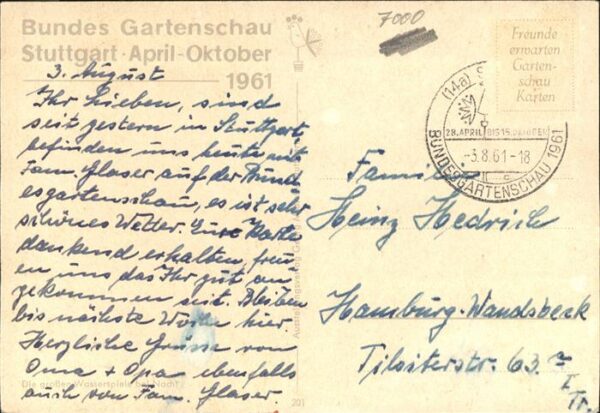 Bundes Gartenschau
Stuttgart · April-Oktober
1961
3. August
Ihr Lieben, sind
seit gestern in Stuttgart,
befinden uns heute mit
Fam. Glaser auf der Bund
esgartenschau, es ist sehr
schönes Wetter. Eure Karte
dankend erhalten, freu
en uns das Ihr gut an
gekommen seit. Bleiben
bis nächste Woche hier.
Herzliche Grüsse von
Oma + Opa ebenfalls
auch von Fam. Glaser.
Die großen Wasserspiele bei Nacht
201
7000
Freunde
erwarten
Garten-
schau
Karten
(14a)
28. APRIL BIS 15.
-3.8.61-18
c
BUNDESGARTENSCHAU 1961
Familie
Heinz Hedrich
Hamburg-Wandsbeck
Tilsiterstr. 63.
I
Tr.